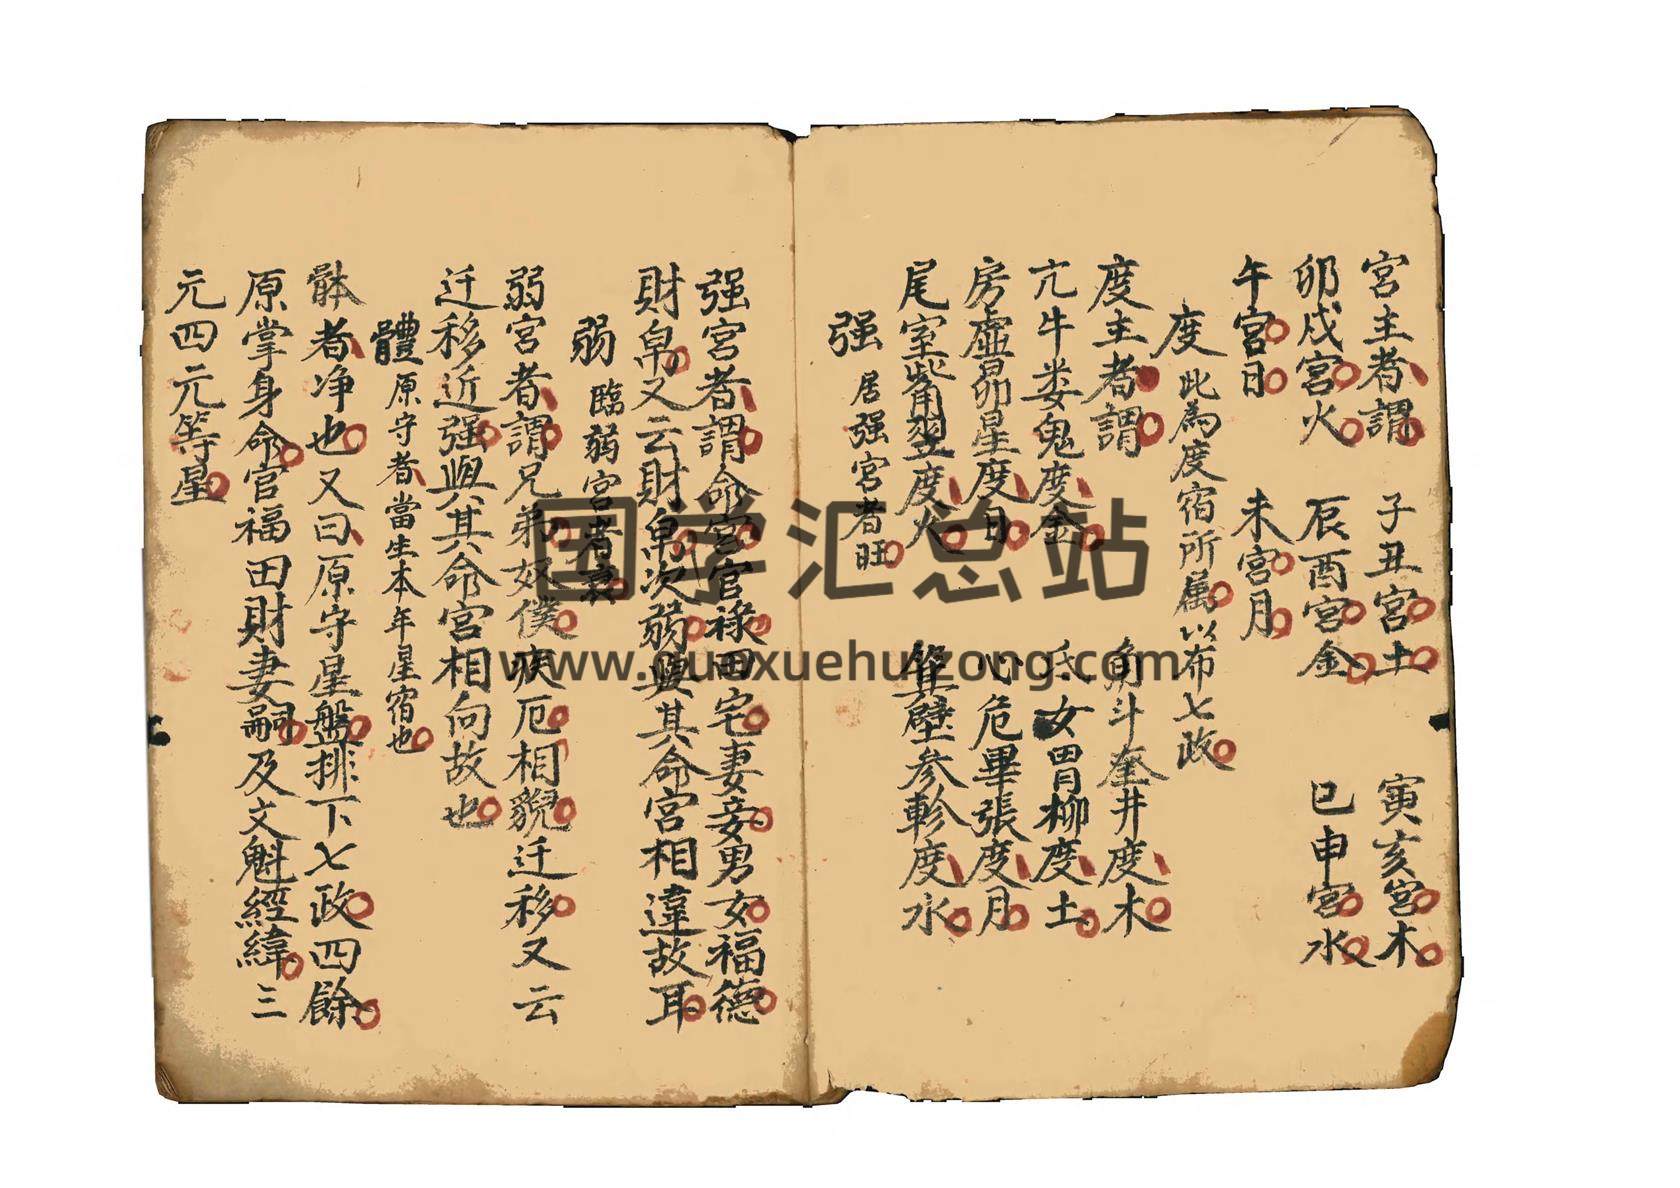 宮主者謂 子丑宮土 寅亥宮木
卯戍宮火 辰酉宮金 巳申宮水
午宮日 未宮月
度 此為度宿所属以布七政
度主者謂 角斗奎井度木
亢牛娄鬼度金 氐女胃柳度土
房虛昴星度日 心危畢張度月
尾室觜翌度火 箕壁参軫度水
强 居强宮者旺
强宮者謂命宮官禄田宅妻妾男女福德
財帛又云財帛次弱與其命宮相違故耳
弱 臨弱宮者衰
弱宮者謂兄弟奴僕疾厄相貌迁移又云
迁移近强與其命宮相向故也
體 原守者當生本年星宿也
骵者净也又曰原守星盤排下七政四餘
原掌身命官福田財妻嗣及文魁經緯三
元四元等星
国学汇总站
www.guoxuehuizong.com